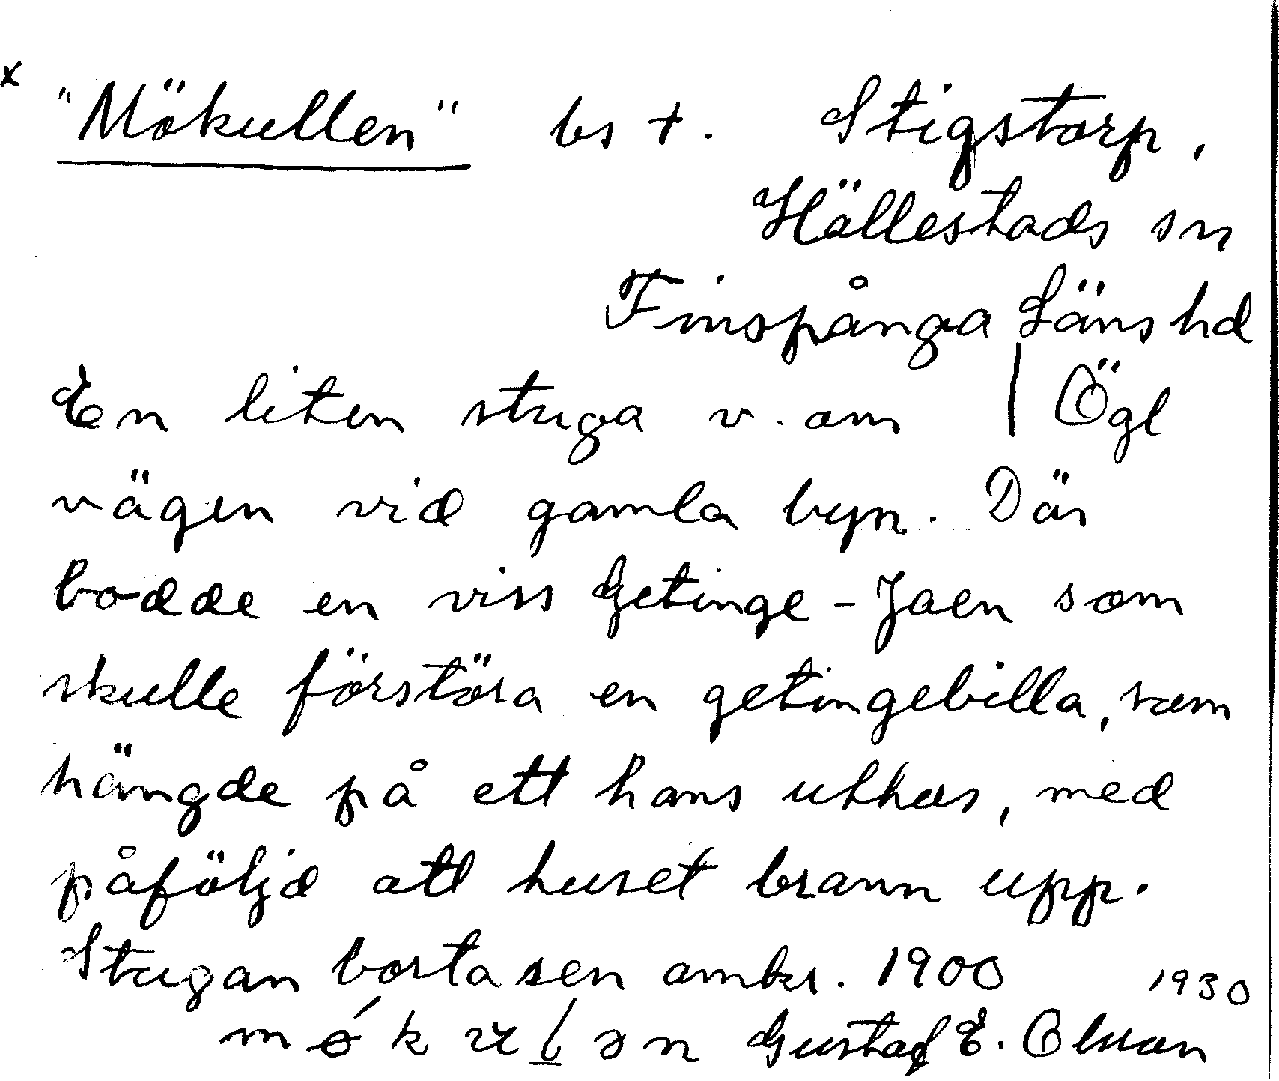 x
"Mökullen" bs †. Stigstorp,
Hällestads sn
Finspånga Läns hd
En liten stuga v. om | Ögl
vägen vid gamla byn. Där
bodde en viss Getinge-Jaen som
skulle förstöra en getingebilla, som
hängde på ett hans uthus, med
påföljd att huset brann upp.
Stugan borta sen omkr. 1900 1930
Gustaf E. Olsson